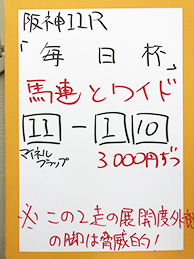 阪神11R
「毎日杯」
馬連とワイド
11-1 10
マイネルフラップ
3000円ずつ
※この2走の展開度外視
の脚は脅威的!